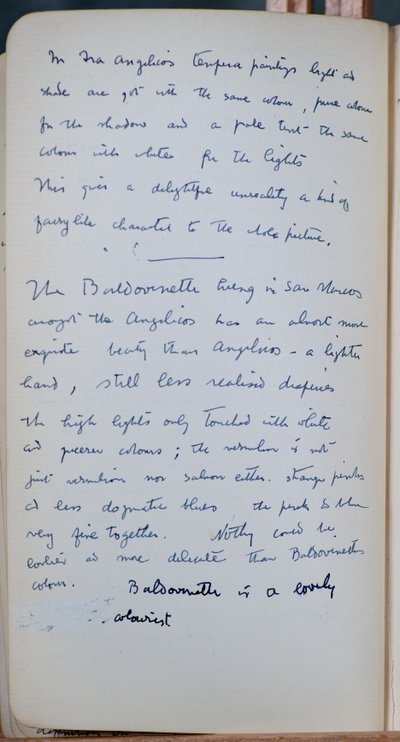 In Fra Angelicos tempera paintings light ad
shade are got with the same colour, pure colour
for the shadow and a pale tint the same
colour with white for the lights
This gives a delightful unreality a kind of
fairylike character to the whole picture.
The Baldovinetti hung in San Marcos
amongst the Angelicos has an almost more
exquisite beauty than Angelicos - a lighter
hand, still less realised draperies
the high lights only touched with white
ad queerer colours; the vermilion is not
just vermilion nor salmon either. strange pinks
ad less dogmatic blues the pink & blue
very fine together. Nothing could be
lovelier ad more delicate than Baldovinettis
colour. Baldovinetti is a lovely
colourist